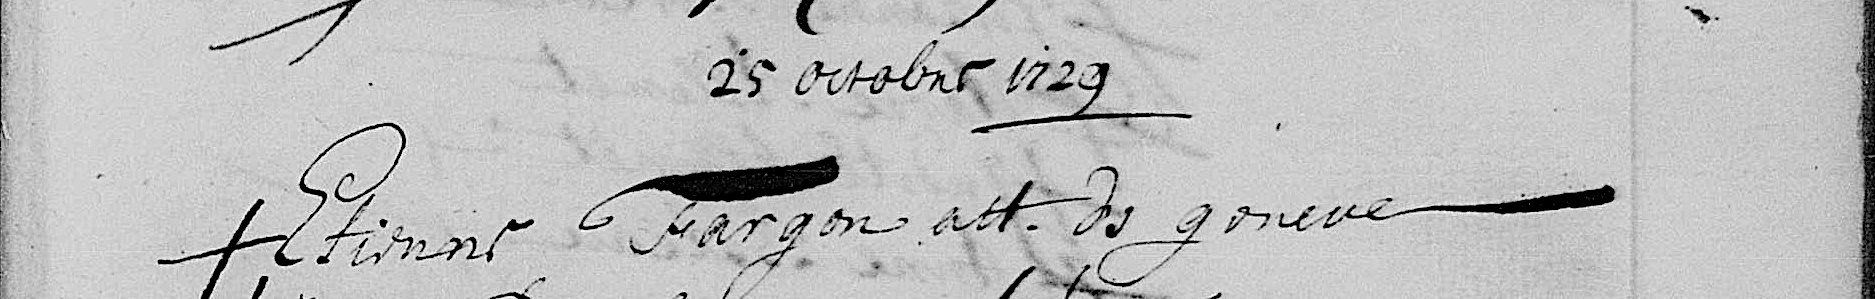 25 octobre 1729
+ Etienne Fargon att. de geneve